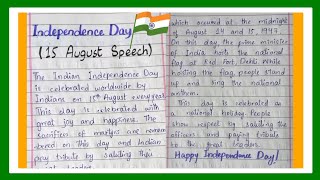 Independence Day
(15 August Speech)
The Indian Independence Day
is celebrated worldwide by
Indians on 15th August every year.
This day is celebrated with
great joy and happiness. The
sacrifices of martyrs are remem-
bered on this day and Indian
pay tribute by saluting their
which occured at the midnight
of August 14 and 15, 1947.
On this day, the prime minister
of India hoists the national
flag at Red Fort, Delhi. While
hosting the flag, people stand
up and sing the national
anthem.
This day is celebrated as
a national holiday. People
show respect by saluting the
officers and paying tribute
to the great leaders.
Happy Independence Day!